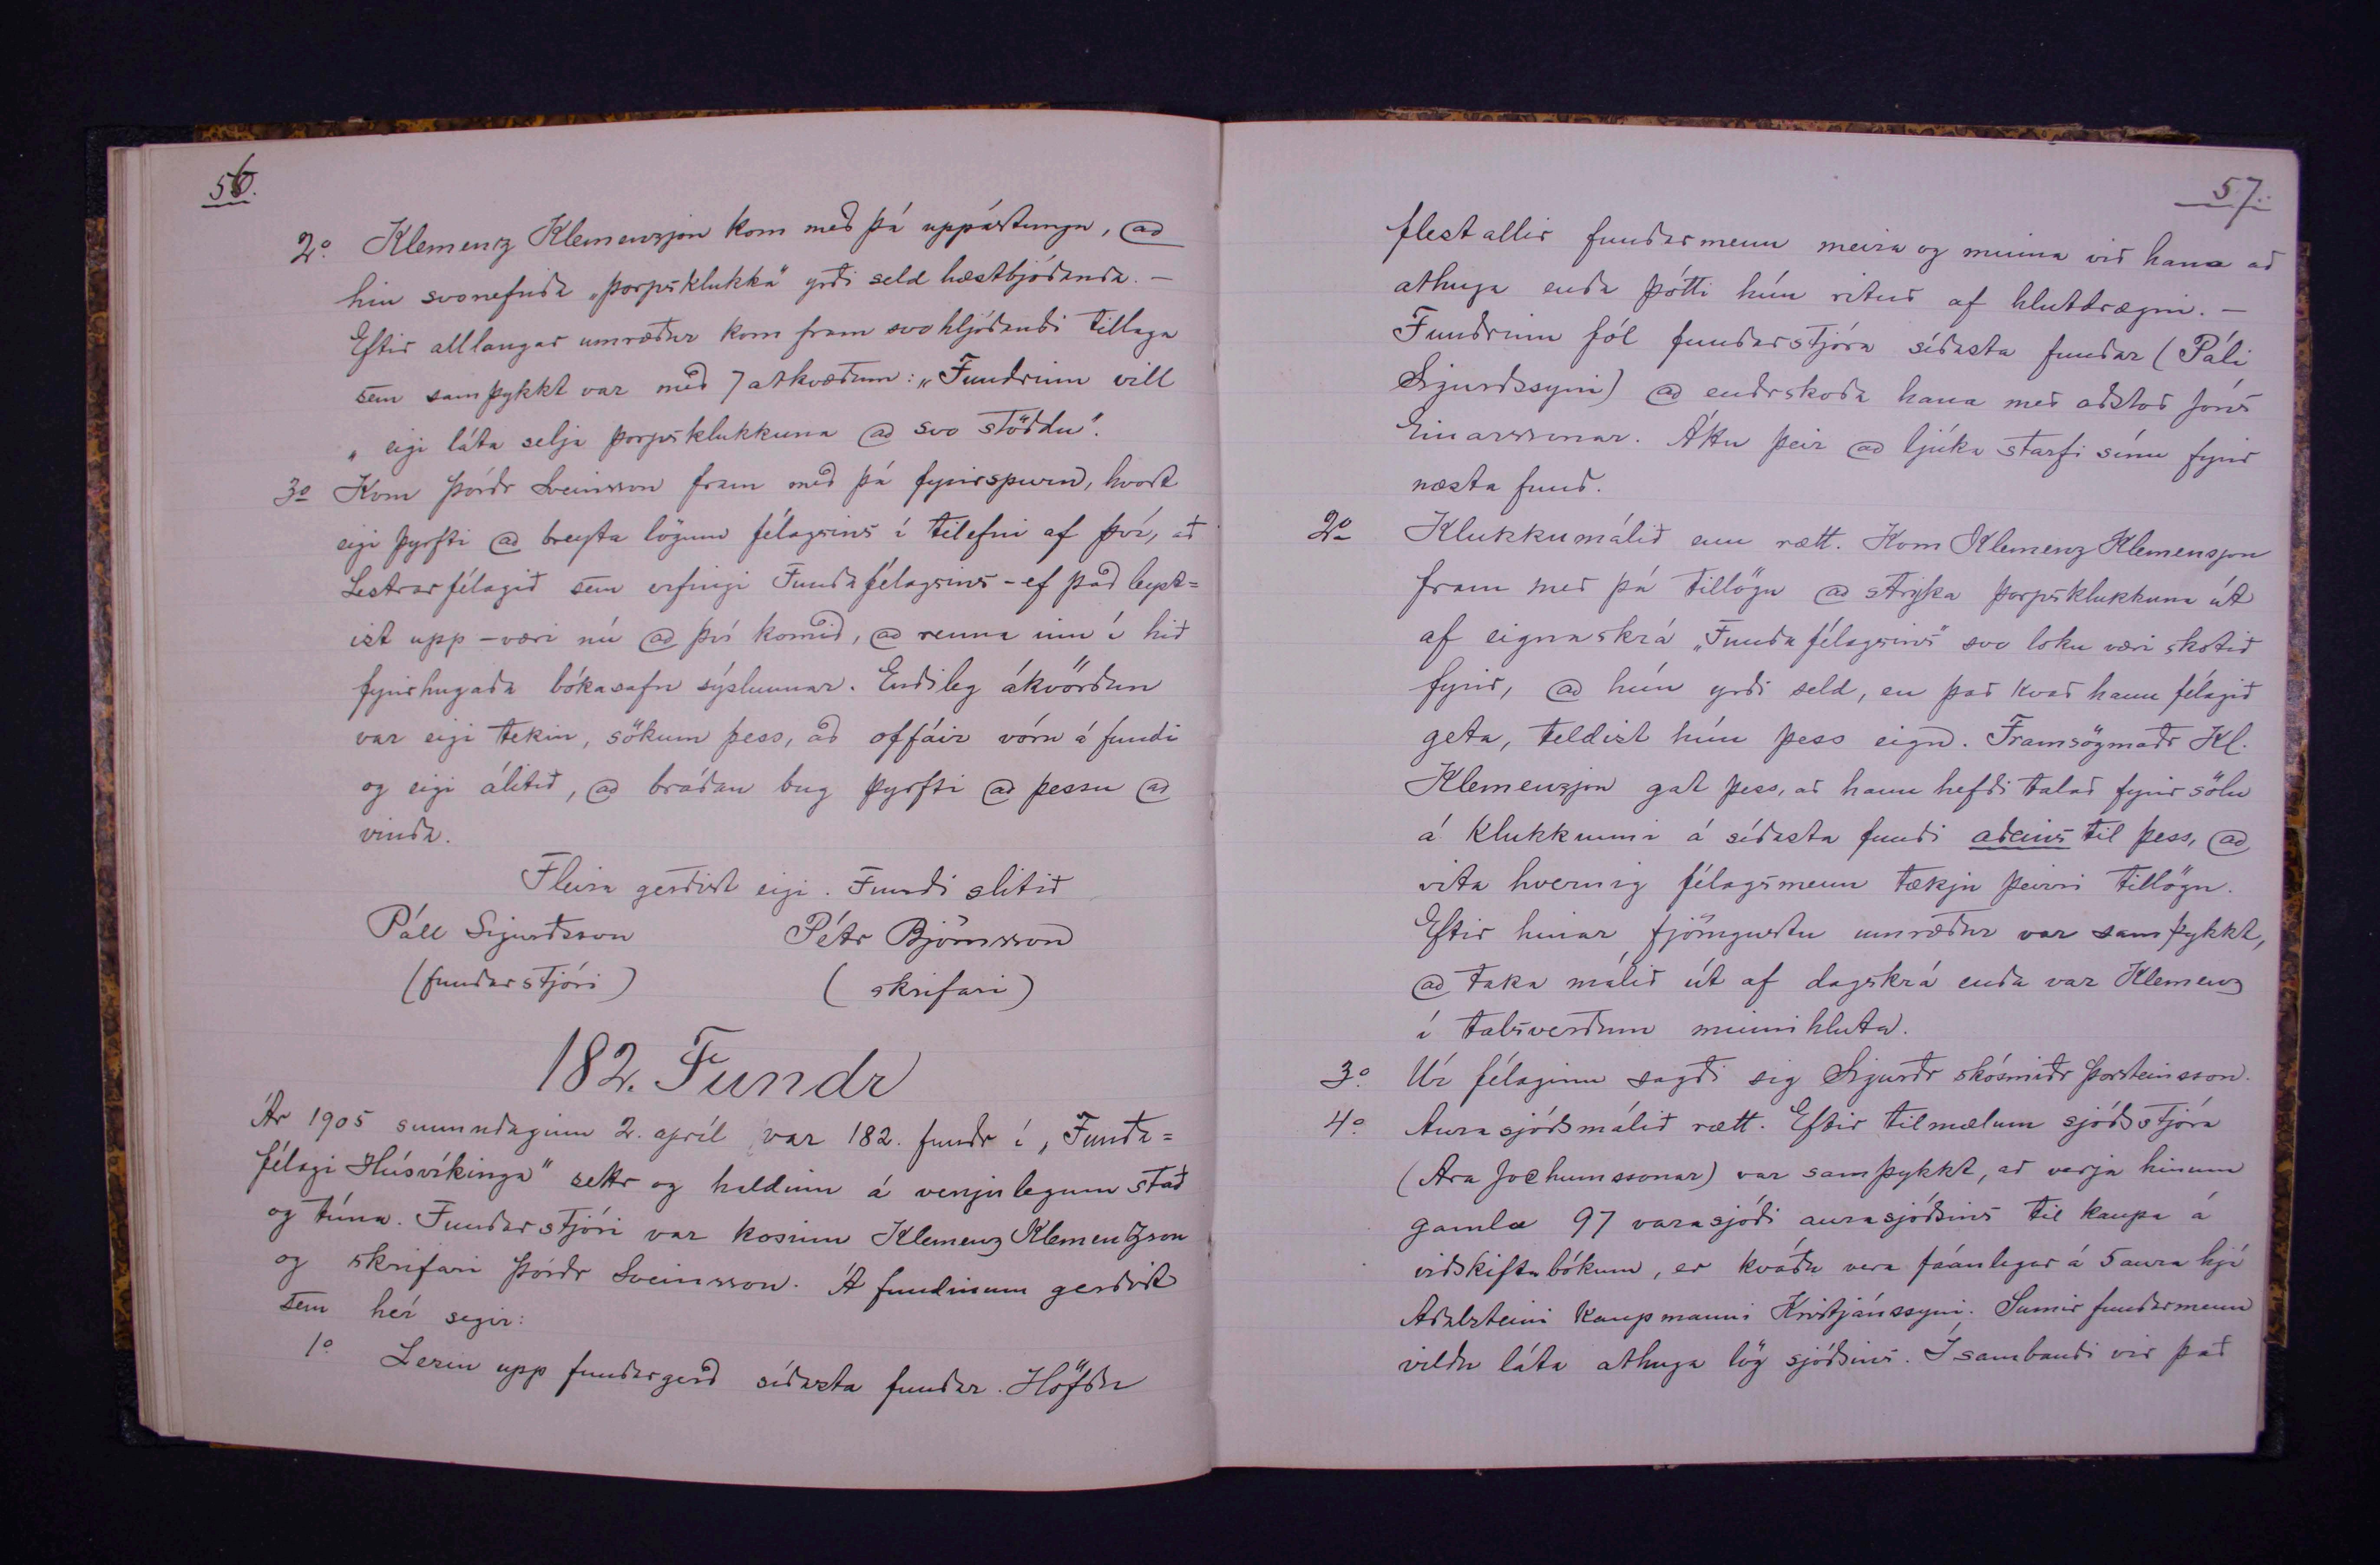 56.
2.° Klemenz Klemenzson kom með þá uppástungu, @ að
hin svonefnda „þorpsklukka" yrði seld hæstbjóðanda. –
Eftir alllangar umræður kom fram svohljóðandi tillaga
sem samþykkt var með 7 atkvæðum: „Fundrinn vill
„ eigi láta selja þorpsklukkuna @ svo stöddu".
3° Kom Þórðr Sveinsson fram með þá fyrirspurn, hvort
eigi þyrfti @ breyta lögum félagsins í tilefni af því, að
Lestrarfélagið sem erfingi Fundafélagsins – ef það leyst=
ist upp – væri nú @ því komið, @ renna inn í hið
fyrirhugaða bókasafn sýslunnar. Endileg ákvörðun
var eigi tekin, sökum þess, að offáir vóru á fundi
og eigi álitið, @ bráðan bug þyrfti @ þessu @
vinda.
Fleira gerðist eigi. Fundi slitið
Páll Sigurðsson Pétr Björnsson
(fundarstjóri) (skrifari)
182. Fundr
Ár 1905 sunnudaginn 2. apríl var 182. fundr í „Funda=
félagi Húsvíkinga" settr og haldinn á venjulegum stað
og tíma. Fundarstjóri var kosinn Klemenz Klemenzson
og skrifari Þórðr Sveinsson. Á fundinum gerðist
sem hér segir:
1° Lesin upp fundargerð síðasta fundar. Höfðu
57.
flestallir fundarmenn meira og minna við hana að
athuga enda þótti hún rituð af hlutdrægni. –
Fundrinn fól fundarstjóra síðasta fundar (Páli
Sigurðssyni) @ endrskoða hana með aðstoð Jóns
Einarssonar. Áttu þeir @ ljúka starfi sínu fyrir
næsta fund.
2° Klukkumálið enn rætt. Kom Klemenz Klemensson
fram með þá tillögu @ stryka þorpsklukkuna út
af eignaskrá „Fundafélagsins" svo loku væri skotið
fyrir, @ hún yrði seld, en það kvað hann félagið
geta, teldist hún þess eign. Framsögmaðr Kl.
Klemenzson gat þess, að hann hefði talað fyrir sölu
á klukkunni á síðasta fundi aðeins til þess, @
vita hvernig félagsmenn tækju þeirri tillögu.
Eftir hinar fjörugustu umræður var samþykkt,
@ taka málið út af dagskrá enda var Klemenz
í talsverðum minnihluta.
3.° Úr félaginu sagði sig Sigurðr skósmiðr Þorsteinsson.
4.° Aurasjóðsmálið rætt. Eftir tilmælum sjóðsstjóra
(Ara Jochumssonar) var samþykkt, að verja hinum
gamla 97 varasjóði aurasjóðsins til kaupa á
viðskiftabókum, er kváðu vera fáanlegar á 5 aura hjá
Aðalsteini kaupmanni Kristjánssyni. Sumir fundarmenn
vildu láta athuga lög sjóðsins. Í sambandi við það